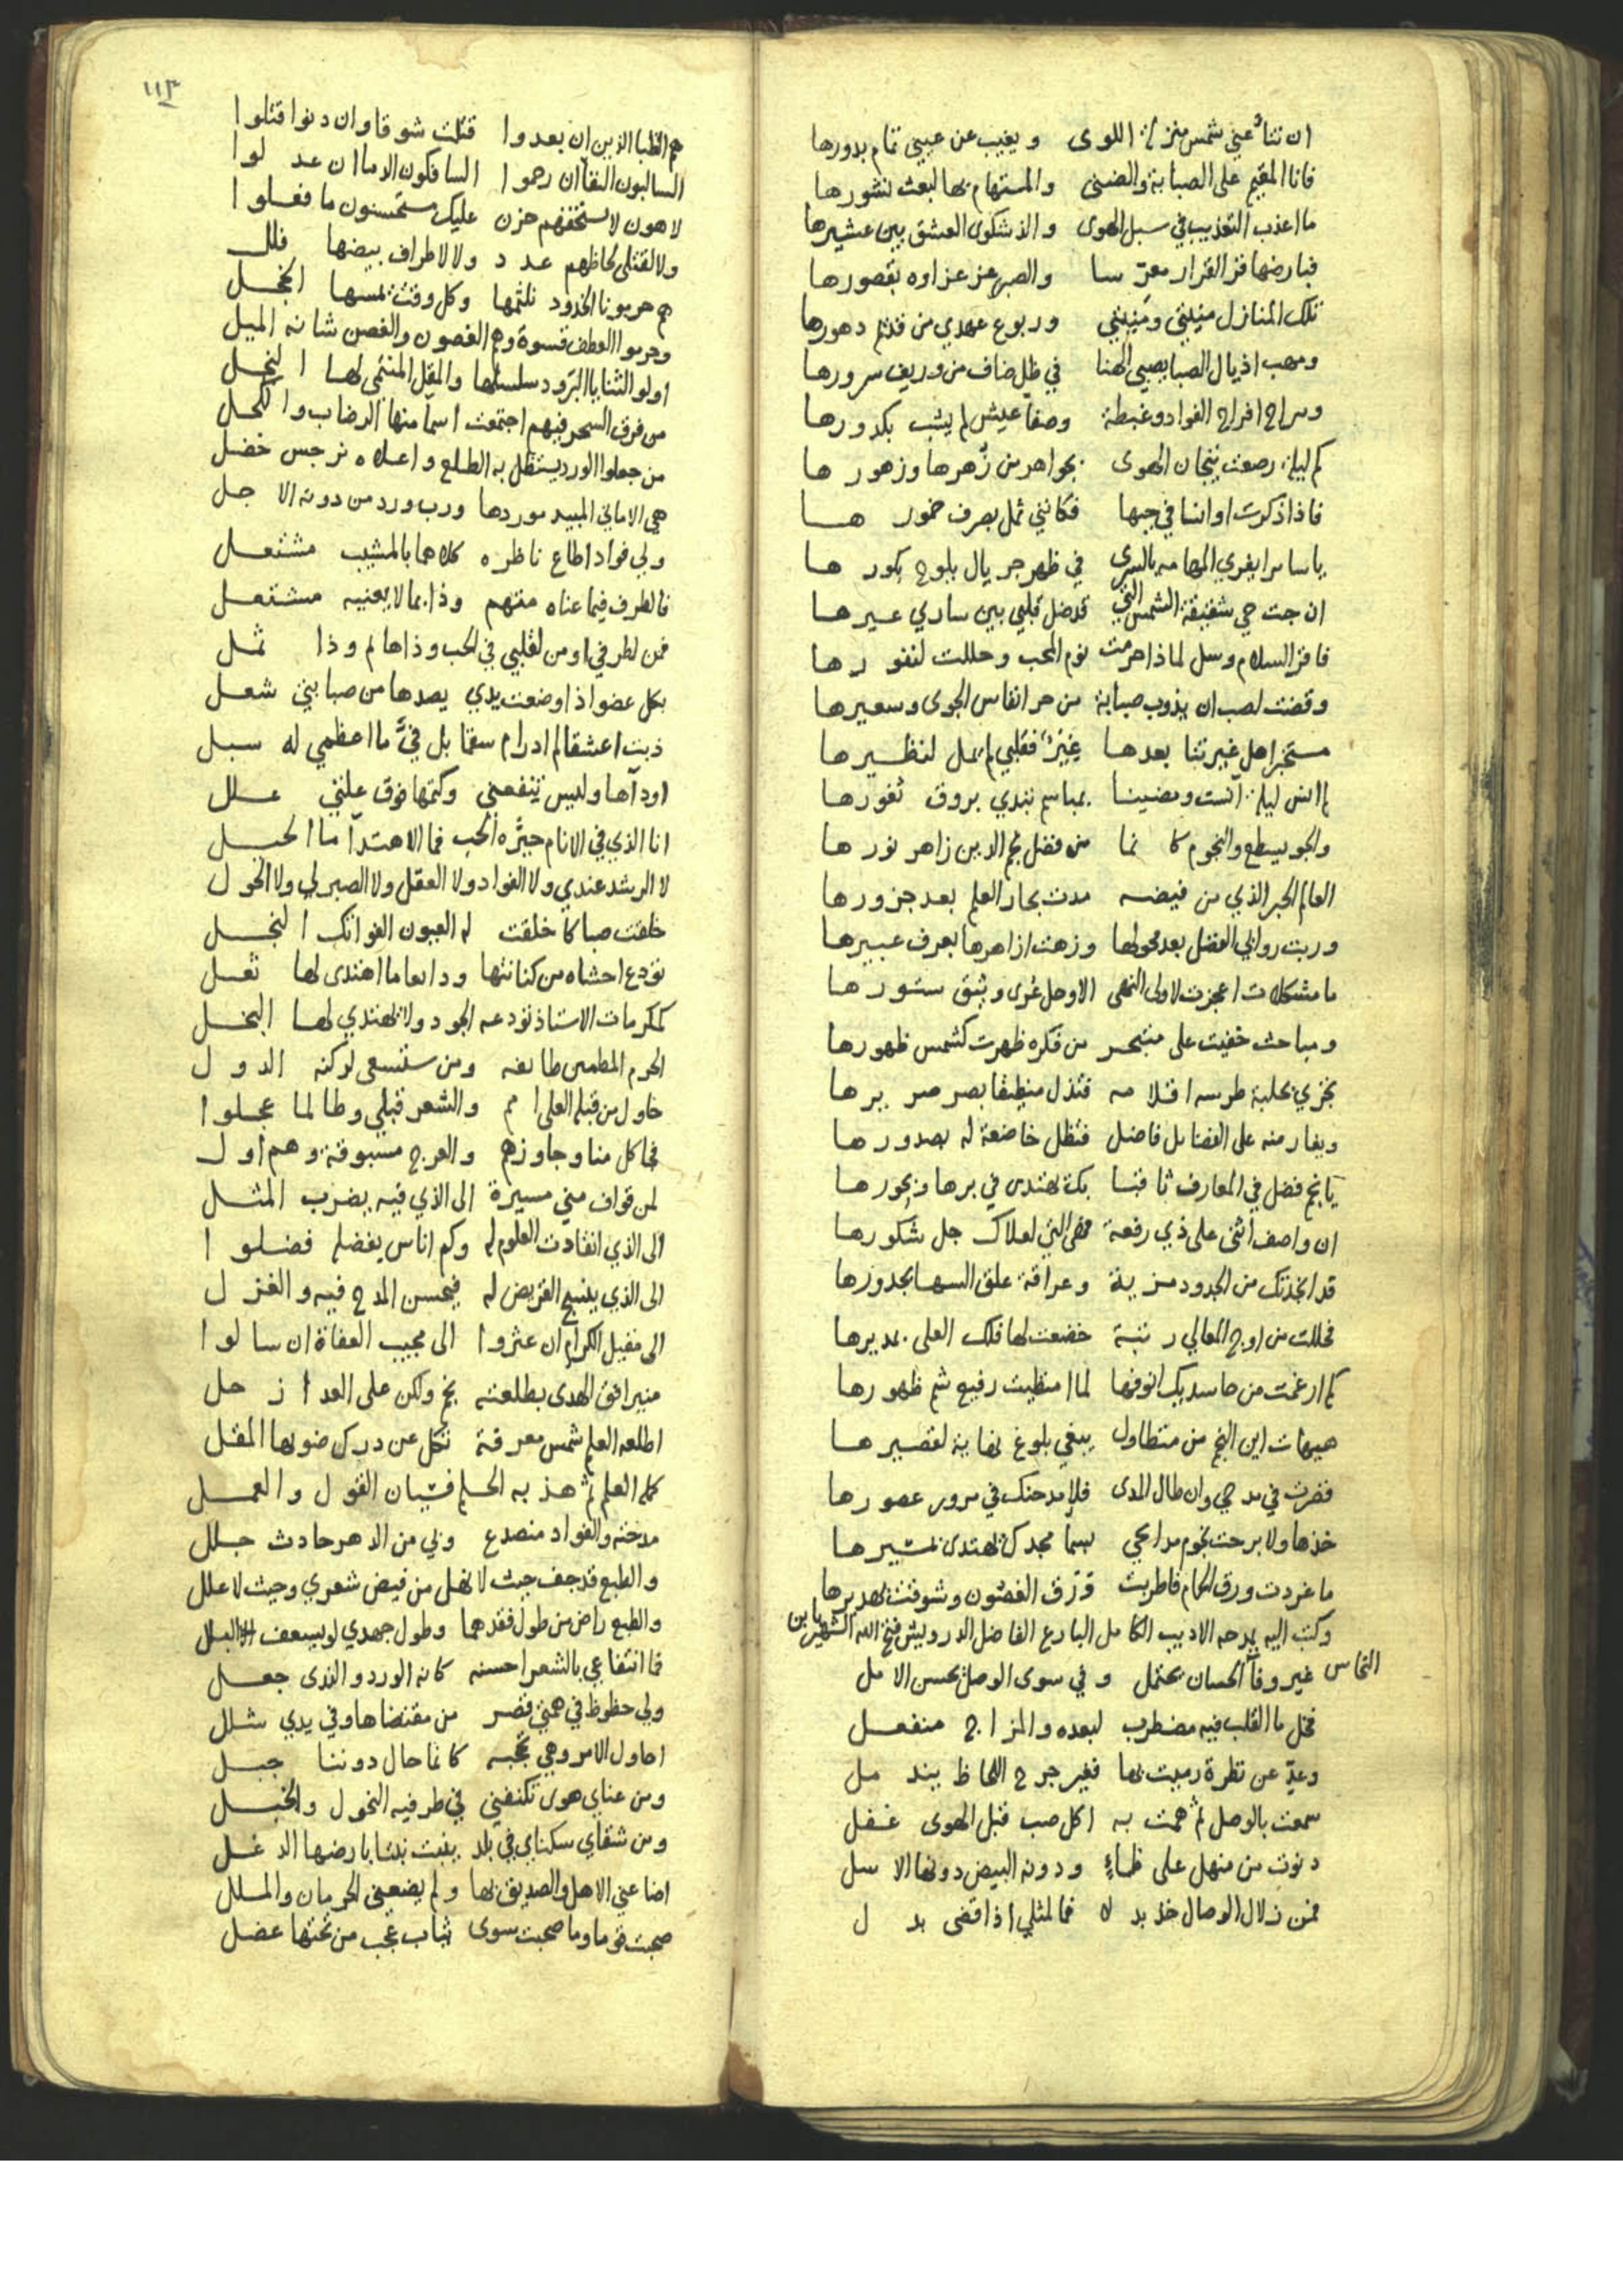 ان تنأ عني شمس منزلة اللوى ويغيب عن عيني تمام بدورها
فانا المقيم على الصبابة والضنى والمستهام بها لبعث نشورها
ما اعذب التعذيب في سبل الهوى والذ شكوى العشق بين عشيرها
فبارضها قر القرار معرسا والصبر عز عزاوه بقصورها
تلك المنازل منيتي ومنيتي وربوع عهدي من قديم دهورها
ومهب اذيال الصبا بصبى الهنا في ظل ضاف من وريف سرورها
ومراح افراح الفواد وغبطة وصفا عيش لم يشب بكدورها
كم ليلة رصعت تيجان الهوى بجواهر من زهرها وزهورها
فاذا ذكرت اوانسا في حبها فكانني ثمل بصرف خمورها
يا سامرا يفري المهامه بالسرى في ظهر جريال يلوح بكورها
ان جئت حي شقيقة الشمس التي قد ضل قلبي بين ساري عيرها
فاقر السلام وسل لماذا حرمت نوم المحب وحللت لنفورها
وقضت لصب ان يذوب صبابة من حر انفاس الجوى وسعيرها
مستخبرا هل غيرتنا بعدها غير فقلبي لم يمل لنظيرها
لم انس ليلة انست ومضينا بمباسم تبدي بروق ثغورها
والجو يسطع والنجوم كانما من فضل نجم الدين زاهر نورها
العالم الحبر الذي من فيضه مدت بحار العلم بعد جزورها
وربت روابي الفضل بعد محولها وزهت ازاهرها بعرف عبيرها
ما مشكلات اعجزت لاولى النهى الا وحل عرى وثيق ستورها
ومباحث خفيت على متبحر من فكره ظهرت كشمس ظهورها
تجري بحلبة طرسه اقلامه فتذل منطيقا بصر صريرها
ويغار منه على الفضايل فاضل فتظل خاضعة له بصدورها
يا نجم فضل في المعارف ثاقبا بك نهتدى في برها وبحورها
ان واصف اثنى على ذي رفعة فهي التي لعلاك جل شكورها
قد انجذتك من الجدود مزية وعراقة علق السها بجدورها
فحللت من اوج المعالي رتبة خضعت لها فلك العلى بمديرها
كم ارغمت من حاسديك انوفها لما امتطيت رفيع شم ظهورها
هيهات اين النجم من متطاول يبغي بلوغ نهاية لقصيرها
قصرت في مدحي وان طال المدى فلامدحنك في مرور عصورها
خذها ولا برحت نجوم مدايحي بسما مجدك نهتدى بمثيرها
ما غردت ورق الحمام فاطربت ورق الغصون وشوقت بهديرها
وكتب اليه يمدحه الاديب الكامل البارع الفاضل الدرويش فتح الله الشهير بابن
النحاس غير وفا الحسان يحتمل وفي سوى الوصل يحسن الامل
فخل ما القلب فيه مضطرب لبعده والمزاج منفعل
وعد عن نظرة رميت بها فغير جرح اللحاظ يندمل
سمعت بالوصل ثم همت به اكل صب قبل الهوى غفل
دنوت من منهل على ظماء ودونه البيض دونها الاسل
فمن زلال الوصال خذ بدلا فما لمثلي اذا قضى بدل
١١٣
هم الظبا الذين ان بعدوا قتلت شوقا وان دنوا قتلوا
السالبون النقا ان رحموا السافكون الدما ان عدلوا
لاهون لا يستخفهم حزن عليك مستحسنون ما فعلوا
ولا لقتلى لحاظهم عدد ولا لاطراف بيضها فلل
هم حرمونا الخدود نلثمها وكل وقت يمسها الخجل
وحرموا العطف قسوة وهم الغصون والغصن شانه الميل
اولو الثنايا البرود سلسلها والمقل المنتمى لها النجل
من فرق السحر فيهم اجتمعت اسما منها الرضاب والكحل
من جعلوا الورد يستظل به الطلع واعلاه نرجس خضل
هي الاماني المبيد موردها ورب ورد من دونه الاجل
ولي فواد اطاع ناظره كلاهما بالمشيب مشتعل
فالطرف فيما عناه متهم وذا بما لا يعنيه مشتغل
فمن لطرفي او من لقلبي في الحب وذا هايم وذا ثمل
بكل عضو اذا وضعت يدي يصدها من صبابتي شعل
ذبت اعشقا لم ادر ام سقما بل في ما اعظمي له سبل
اود آها وليس ينفعني وكتمها فوق علتي علل
انا الذي في الانام حيره الحب فما الاهتدا ما الحيل
لا الرشد عندي ولا الفواد ولا العقل ولا الصبر لي ولا الحول
خلقت صبا كما خلقت له العيون الفواتك النجل
تودع احشاه من كنانتها ودايعا ما اهتدى لها ثعل
كمكرمات الاستاذ تودعه الجود ولا يهتدي لها البخل
الحرم المطمين طايفه ومن ستسعى لركنه الدول
حاول من قبله العلى امم والشعر قبلي وطالما عجلوا
فحاكل منا وجاوزهم والعرج مسبوقة وهم اول
لمن قواف مني مسيرة الى الذي فيه يضرب المثل
الى الذي انقادت العلوم له وكم اناس بفضله فضلوا
الى الذي ينسج القريض له فيحسن المدح فيه والغزل
الى مقيل الكرام ان عثروا الى مجيب العفاة ان سالوا
منير افق الهدى بطلعته نجم ولكن على العدا زحل
اطلعه العلم شمس معرفة تكل عن درك ضوءها المقل
كمله العلم ثم هذبه الحلم فتيان القول والعمل
مدحته والفواد منصدع وبي من الدهر حادث جلل
والطبع قد جف حيث لا نهل من فيض شعري وحيث لا علل
والطبع راض من طول فقدهما وطول جهدي لو يسعف البلل
فما انتفاعي بالشعر احسنه كانه الورد والندى جعل
ولي حظوظ في همتي قصر من مقتضاها وفي يدي شلل
احاول الامر وهي تحجبه كانما حال دوننا جبل
ومن عناي هوى تكنفني في طرفيه النحول والخبل
ومن شقاي سكناي في بلد ينبت نبتا بارضها الدغل
اضاعني الاهل والصديق بها ولم يضعني الحرمان والملل
صحبت قوما وما صحبت سوى ثياب عجب من تحتها عضل